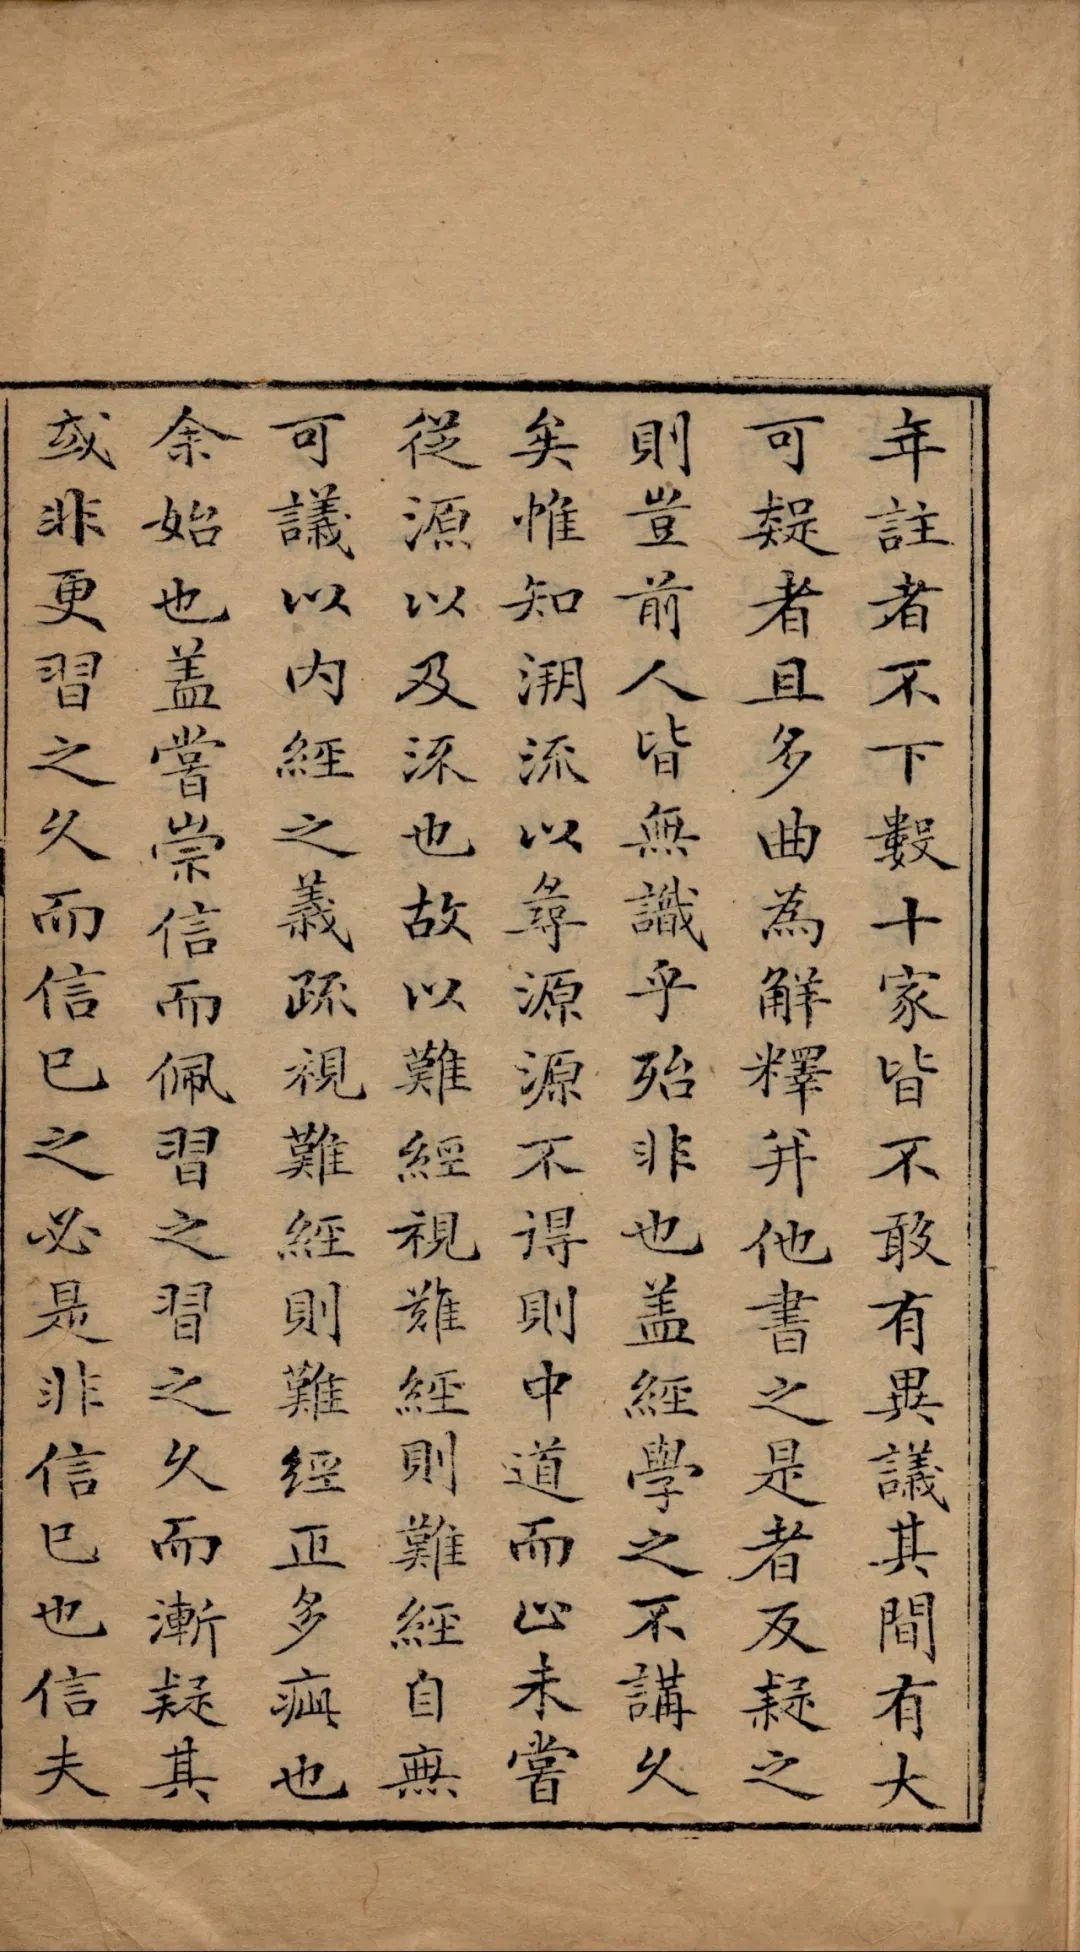 年註者不下數十家皆不敢有異議其間有大
可疑者且多曲為解釋并他書之是者反疑之
則豈前人皆無識乎殆非也盖經學之不講久
矣惟知溯流以尋源源不得則中道而止未嘗
從源以及流也故以難經視難經則難經自無
可議以内經之義疏視難經則難經正多疵也
余始也盖嘗崇信而佩習之習之久而漸疑其
或非更習之久而信已之必是非信已也信夫